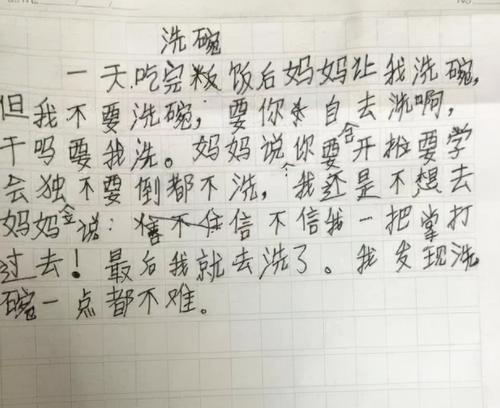 洗碗
一天.吃完饭后妈妈让我洗碗,
但我不要洗碗，要你自去洗啊，
干吗要我洗。妈妈说你要开推要学
会独不要倒都不洗，我还是不想去
妈妈说：信不信我一把掌打
过去！最后我就去洗了。我发现洗
碗一点都不难。